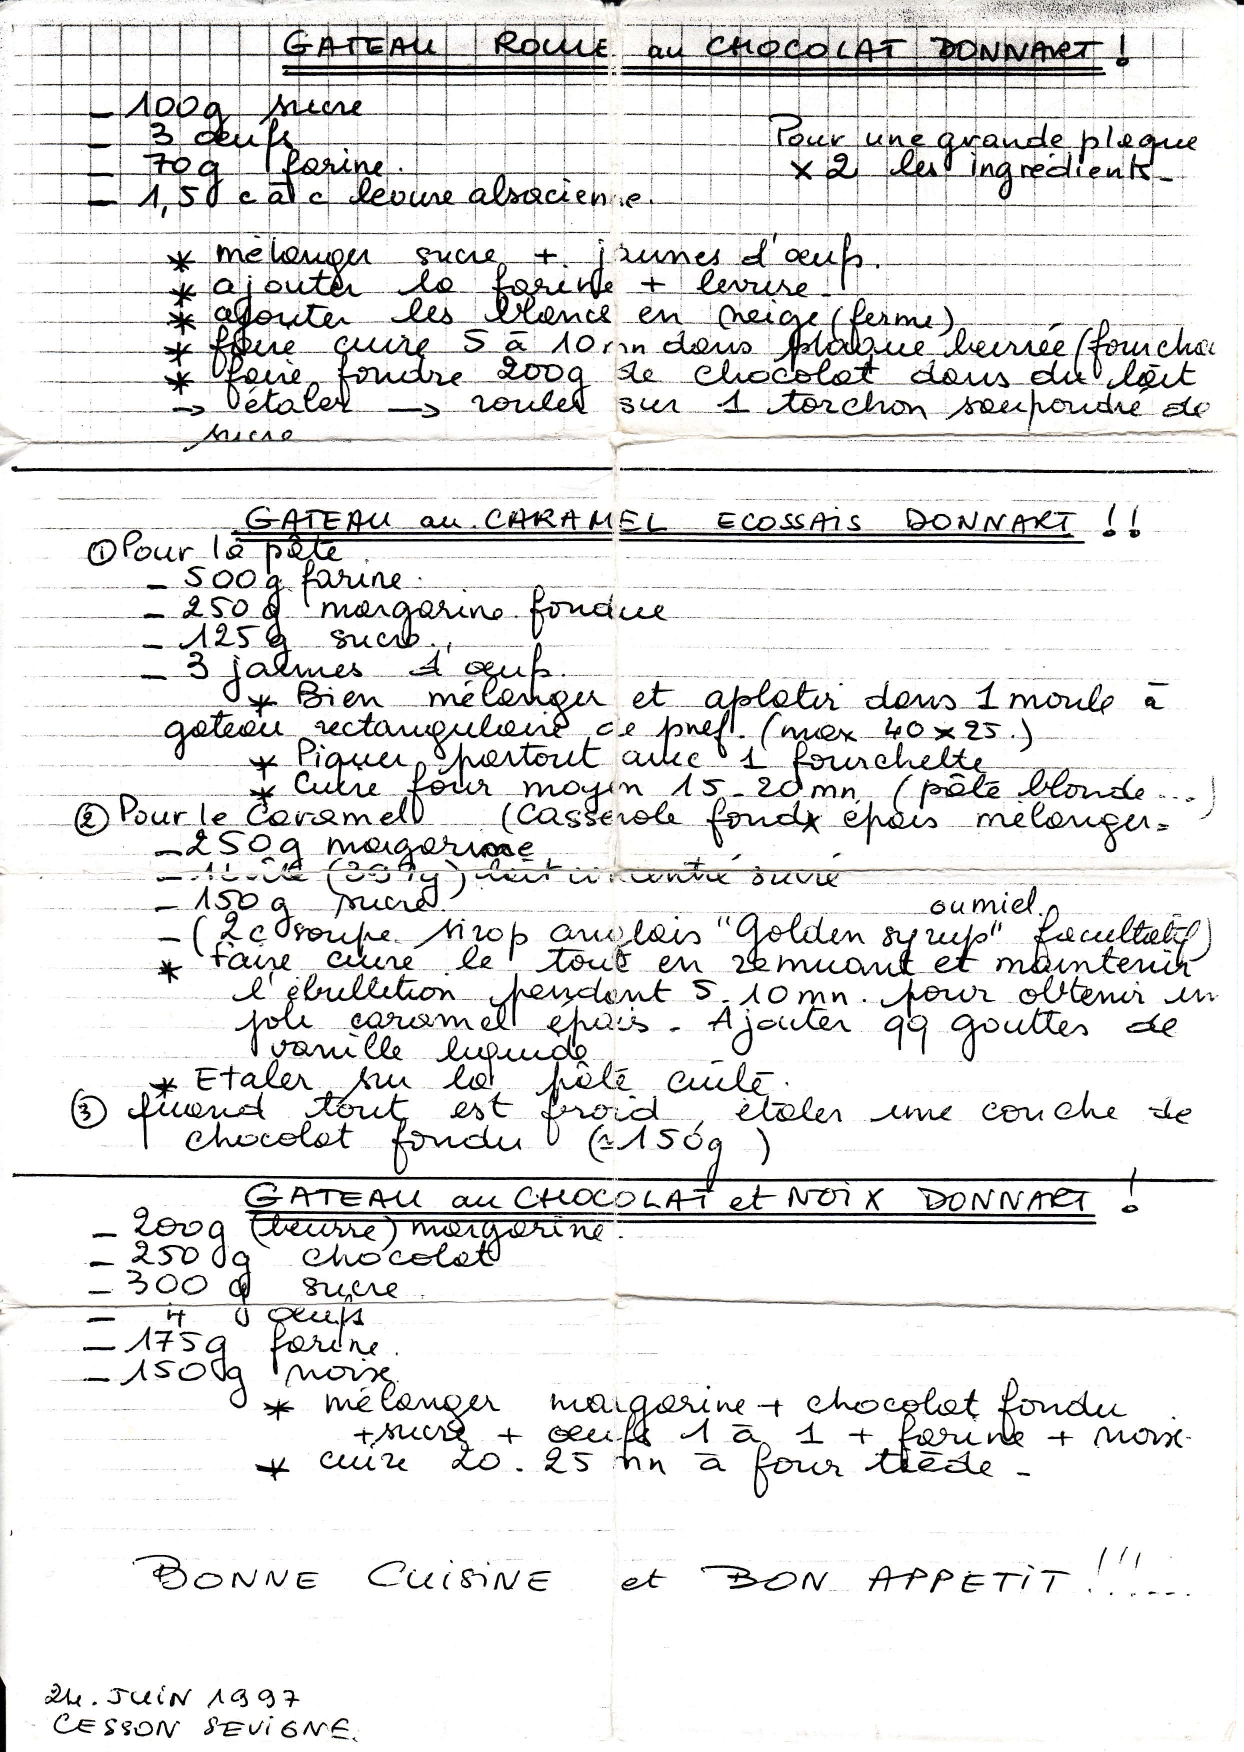 GATEAU ROULE au CHOCOLAT DONNART !
- 100g sucre
- 3 œufs
- 70g farine.
- 1,5 c à c levure alsacienne.
Pour une grande plaque
x 2 les ingrédients -
* mélanger sucre + jaunes d'œufs.
* ajouter la farine + levure -
* ajouter les blancs en neige (ferme)
* faire cuire 5 à 10 mn dans plaque beurrée (fourcha
* faire fondre 200g de chocolat dans du lait
→ étaler → rouler sur 1 torchon saupoudré de
sucre
GATEAU au CARAMEL ECOSSAIS DONNART !!
① Pour la pâte
- 500g farine.
- 250g margarine fondue
- 125g sucre.
- 3 jaunes d'œufs.
* Bien mélanger et aplatir dans 1 moule à
gateau rectangulaire de pref. (max 40 x 25.)
* Piquer partout avec 1 fourchette
* Cuire four moyen 15-20mn (pâte blonde...)
② Pour le Caramel (casserole fond épais mélanger=
- 250g margarine
- 1 boîte (397g) lait concentré sucré
- 150g sucre.
ou miel.
- (2c soupe sirop anglais "Golden syrup" facultatif)
* Faire cuire le tout en remuant et maintenir
l'ébullition pendant 5-10mn. pour obtenir un
joli caramel épais - Ajouter qq gouttes de
vanille liquide
* Etaler sur la pâte cuite.
③ Quand tout est froid, étaler une couche de
chocolat fondu (≃150g)
GATEAU au CHOCOLAT et NOIX DONNART !
- 200g (beurre) margarine.
- 250g chocolat
- 300g sucre
- 4 œufs
- 175g farine.
- 150g noix
* mélanger margarine + chocolat fondu
+ sucre + œufs 1 à 1 + farine + noix.
* cuire 20-25 mn à four tiède -
BONNE CUISINE et BON APPETIT !!!.....
24. JUIN 1997
CESSON SEVIGNE.